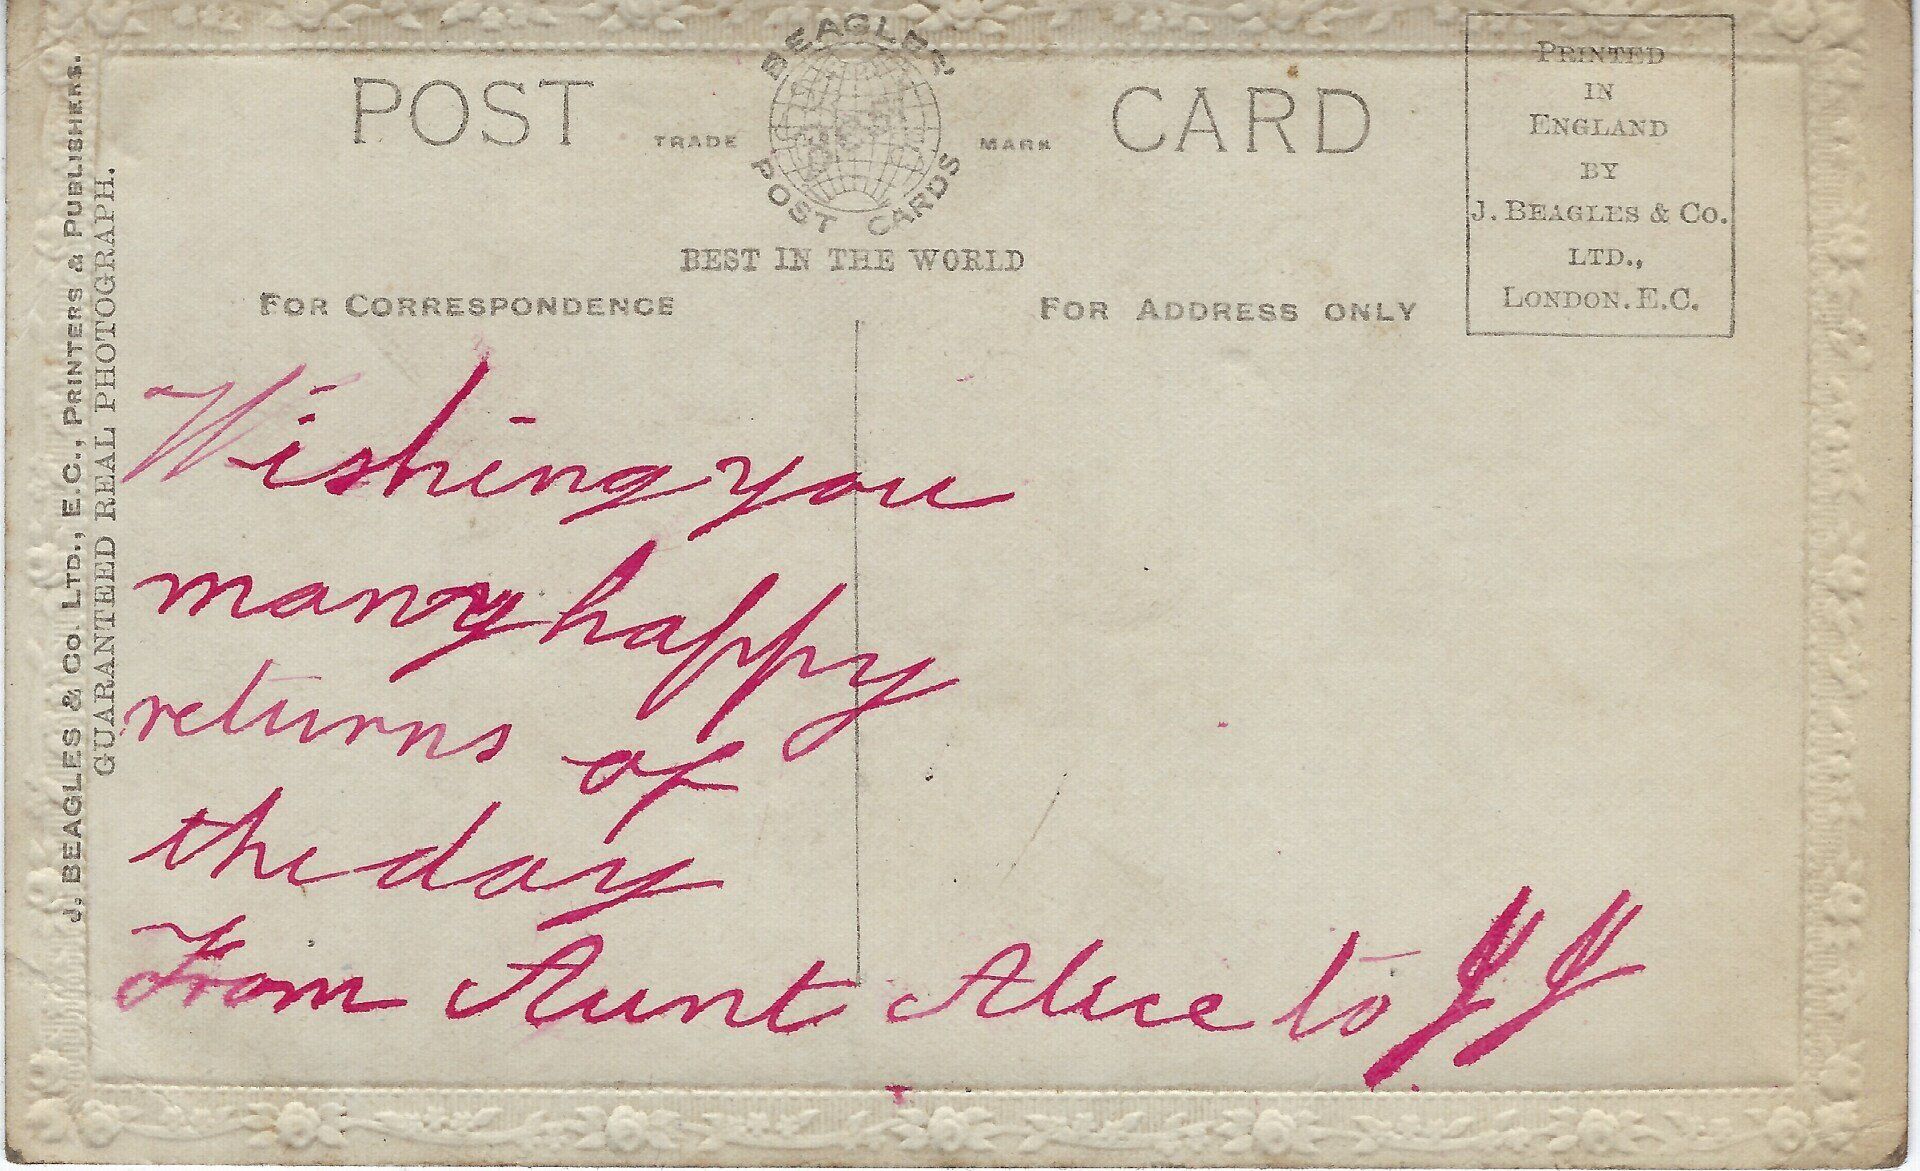 BEAGLES'
POST CARD
TRADE MARK
POST CARDS
BEST IN THE WORLD
FOR CORRESPONDENCE
FOR ADDRESS ONLY
PRINTED
IN
ENGLAND
BY
J. BEAGLES & CO.
LTD.,
LONDON. E.C.
J. BEAGLES & CO. LTD., E.C., PRINTERS & PUBLISHERS.
GUARANTEED REAL PHOTOGRAPH.
Wishing you
many happy
returns of
the day
From Aunt Alice to